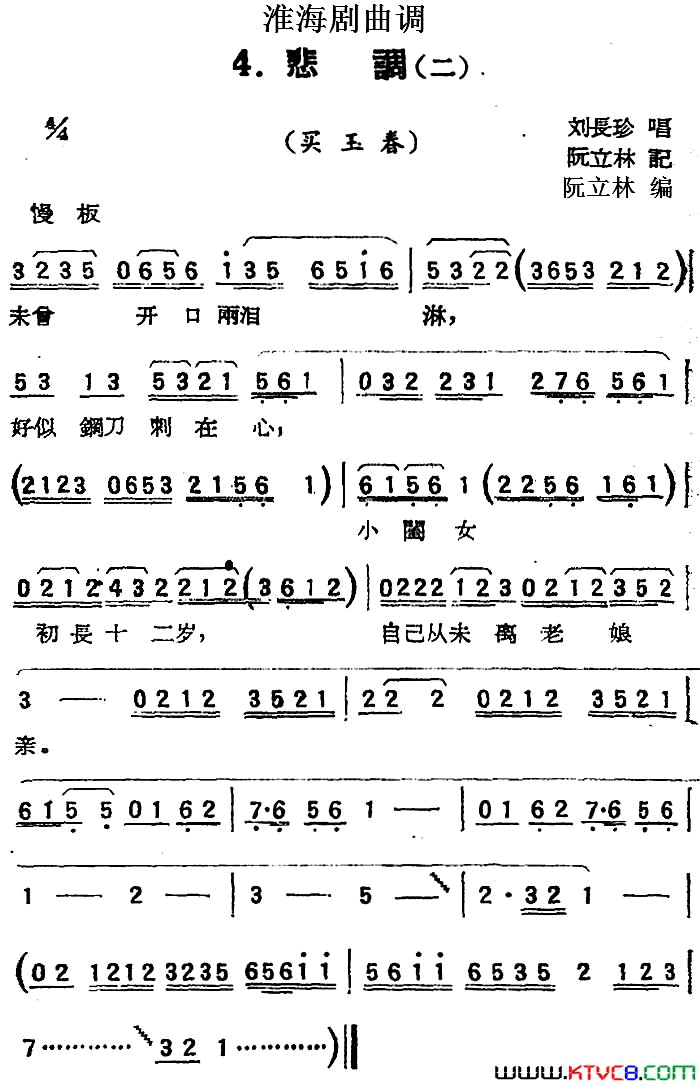 淮海剧曲调
4. 悲 調(二)
4/4
(买玉春)
刘長珍 唱
阮立林 記
阮立林 编
慢板
3 2 3 5 0 6 5 6 i 3 5 6 5 i 6 | 5 3 2 2 (3 6 5 3 2 1 2) |
未曾 开口兩泪 淋,
5 3 1 3 5 3 2 1 5 6 1 | 0 3 2 2 3 1 2 7 6 5 6 1 |
好似鋼刀刺在心,
(2 1 2 3 0 6 5 3 2 1 5 6 1) | 6 1 5 6 1 (2 2 5 6 1 6 1) |
小閨女
0 2 1 2 4 3 2 2 1 2 (3 6 1 2) | 0 2 2 2 1 2 3 0 2 1 2 3 5 2 |
初長十二岁, 自己从未离老娘
3 — 0 2 1 2 3 5 2 1 | 2 2 2 0 2 1 2 3 5 2 1 |
亲。
6 1 5 5 0 1 6 2 | 7·6 5 6 1 — | 0 1 6 2 7·6 5 6 |
1 — 2 — | 3 — 5 — | 2·3 2 1 — |
(0 2 1 2 1 2 3 2 3 5 6 5 6 i i | 5 6 i i 6 5 3 5 2 1 2 3 |
7 ……… 3 2 1 ………) ||
www.KTVC8.com